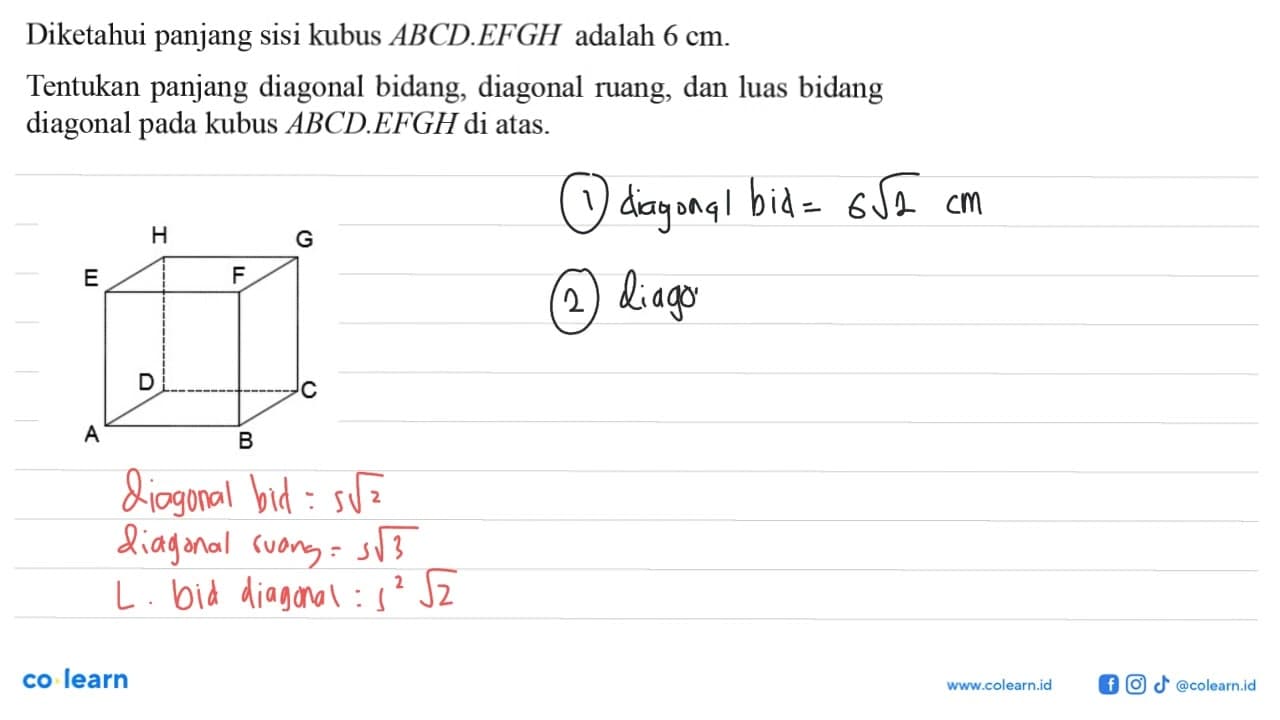 Diketahui panjang sisi kubus ABCD.EFGH adalah 6 cm.
Tentukan panjang diagonal bidang, diagonal ruang, dan luas bidang
diagonal pada kubus ABCD.EFGH di atas.
① diagonal bid = 6√2 cm
② diago
H
G
E
F
D
C
A
B
diagonal bid : s√2
diagonal ruang = s√3
L. bid diagonal : s² √2
co learn
www.colearn.id
@colearn.id